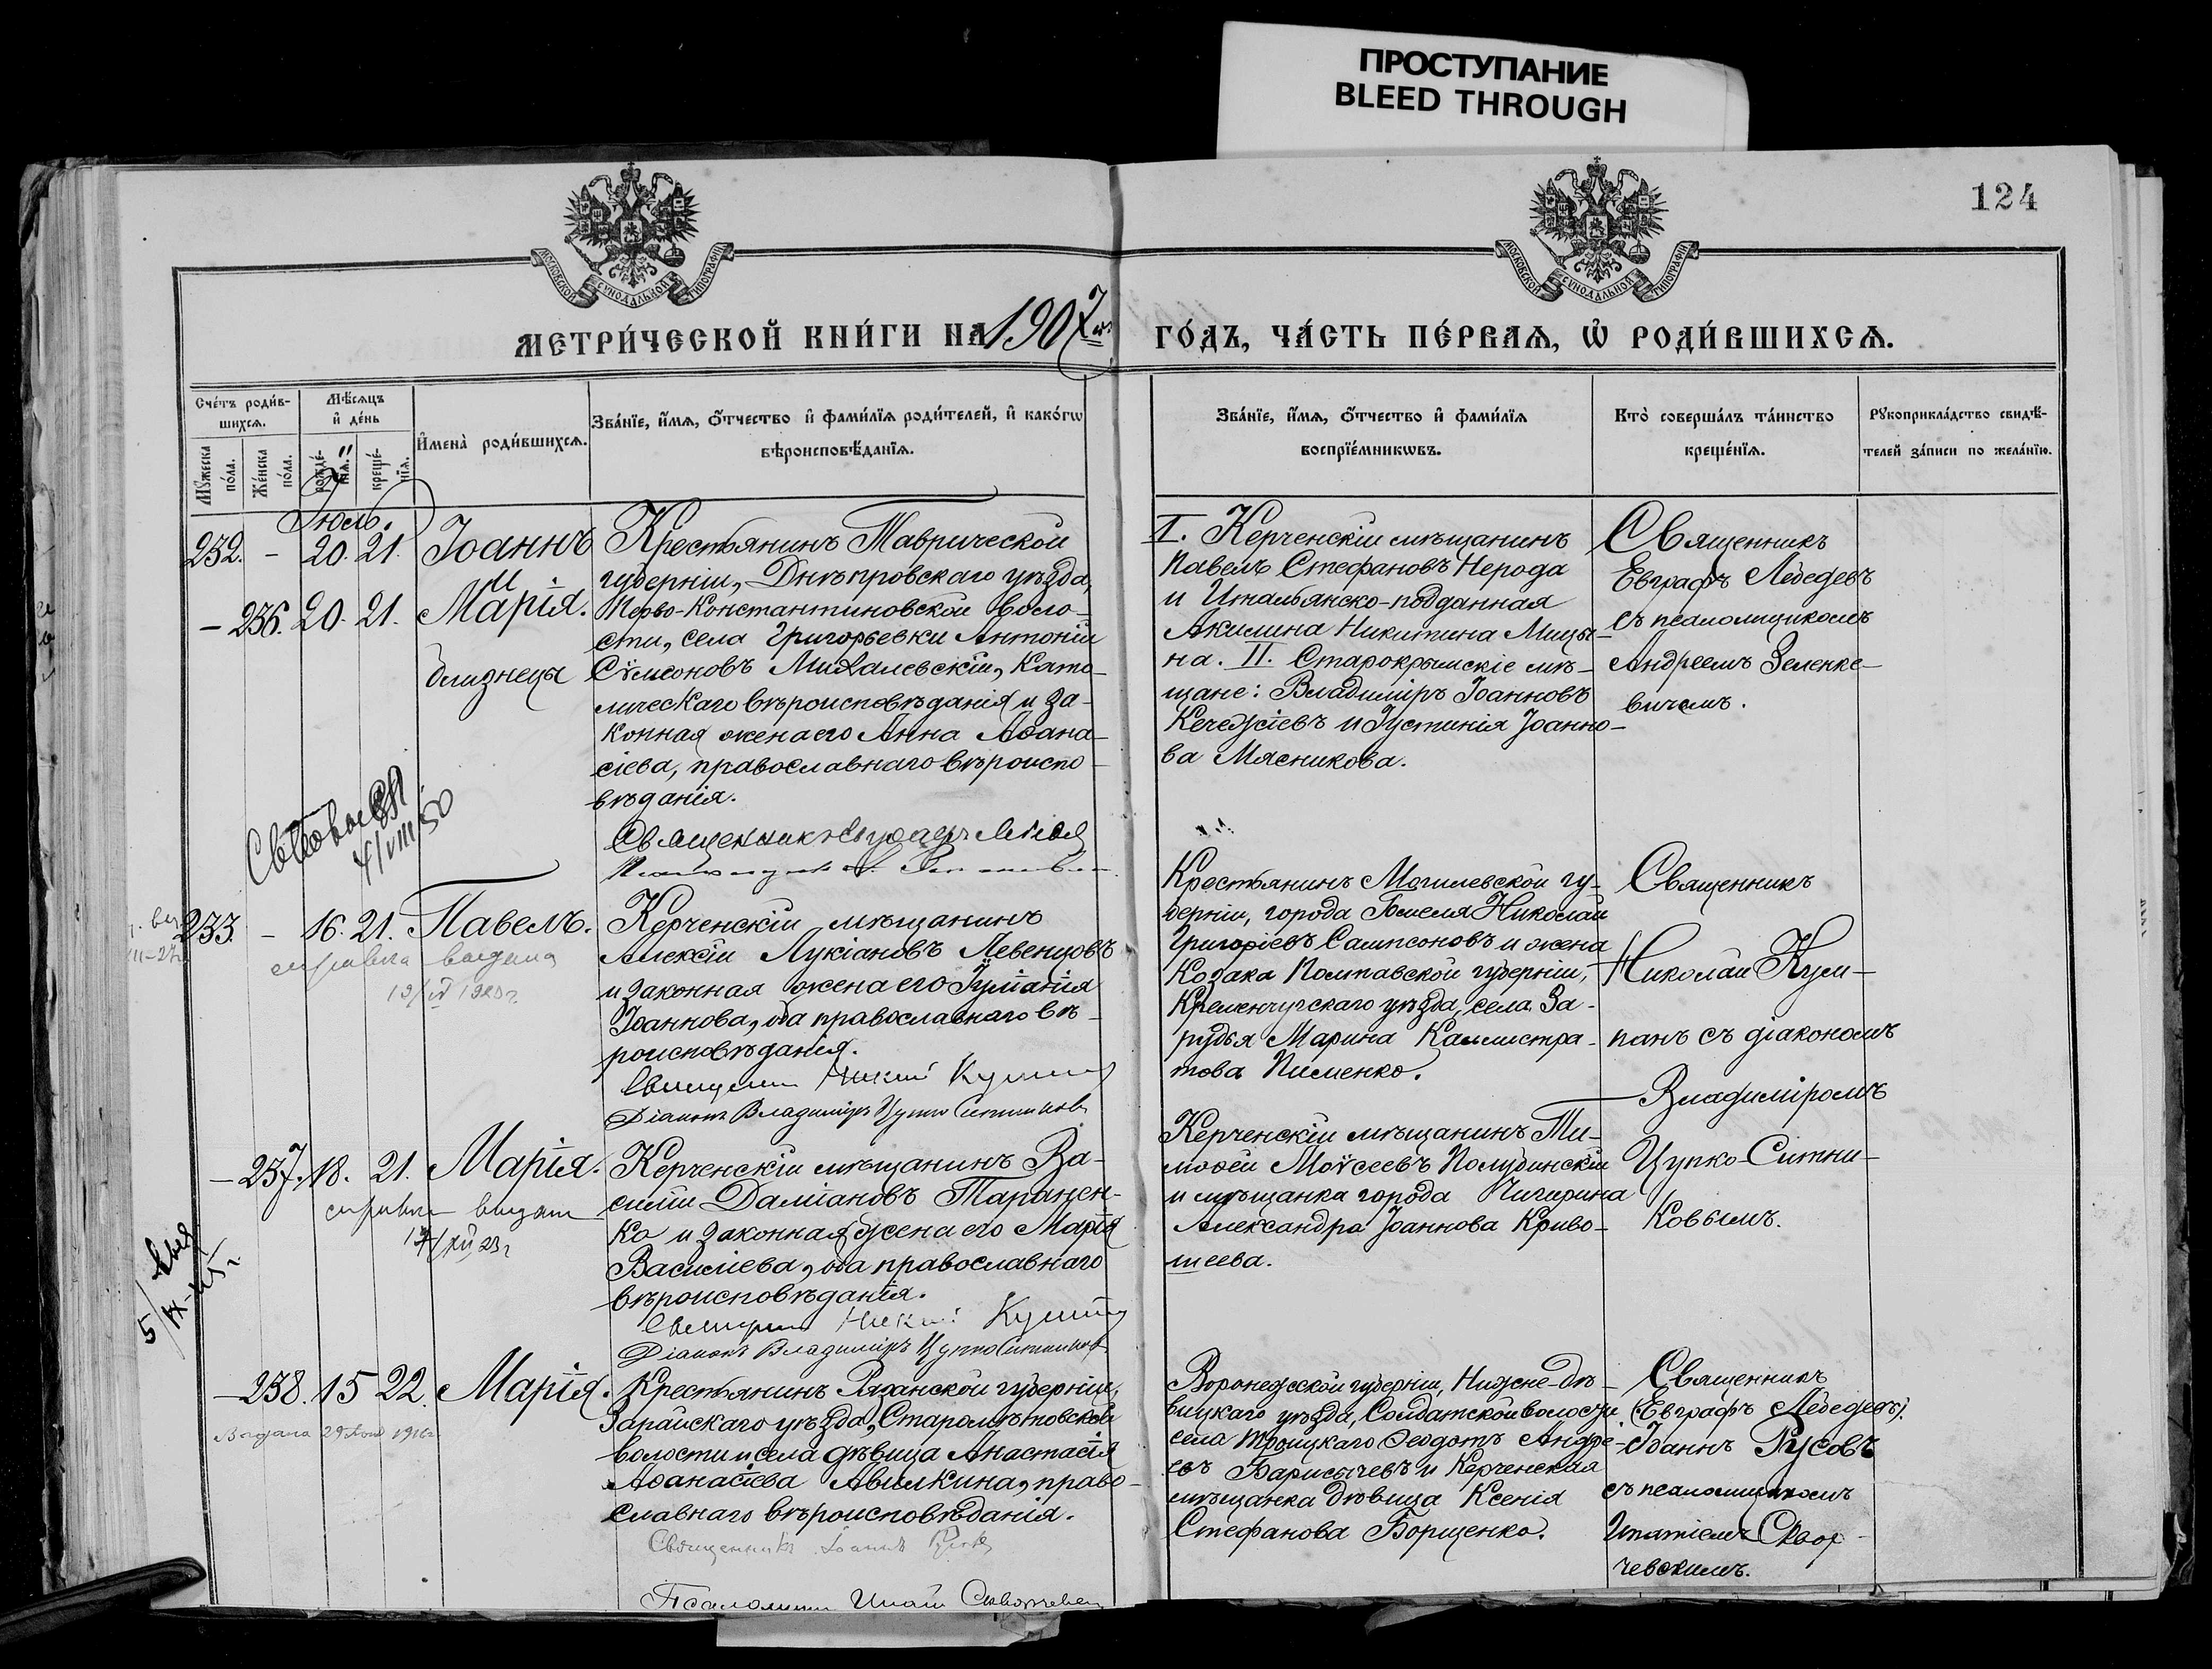 ПРОСТУПАНИЕ
BLEED THROUGH
124
МОСКОВСКОЙ СѴНОДАЛЬНОЙ ТИПОГРАФІИ
МОСКОВСКОЙ СѴНОДАЛЬНОЙ ТИПОГРАФІИ
МЕТРИ́ЧЕСКОЙ КНИ́ГИ НА 1907 ГО́ДЪ, ЧА́СТЬ ПЕ́РВАѦ, Ѡ҆ РОДИ́ВШИХСѦ.
Сче́тъ роди́в-
шихсѧ.
Мꙋ́жеска по́ла.
Же́нска по́ла.
Мѣ́сѧцъ и҆ де́нь
рожде́-нїѧ.
креще́-нїѧ.
И҆мена̀ роди́вшихсѧ.
Зва́нїе, и҆́мѧ, ѻ҆́тчество и҆ фами́лїѧ роди́телей, и҆ како́гѡ
вѣроисповѣ́данїѧ.
Зва́нїе, и҆́мѧ, ѻ҆́тчество и҆ фами́лїѧ
воспрїе́мникѡвъ.
Кто̀ соверша́лъ та́инство
креще́нїѧ.
Рꙋкоприкла́дство свидѣ́-
телей за́писи по жела́нїю.
Іюль.
232. – 20. 21. Іоаннъ
и
– 236. 20. 21. Марія.
близнецы
Крестьянинъ Таврической
губерніи, Днѣпровскаго уѣзда,
Перво-Константиновской воло-
сти, села Григорьевки Антоній
Сѵмеоновъ Михалевскій, като-
лическаго вѣроисповѣданія и за-
конная жена его Анна Аѳана-
сіева, православнаго вѣроиспо-
вѣданія.
Священникъ Евграфъ Лебед
I. Керченскій мѣщанинъ
Павелъ Стефановъ Нерода
и Итальянско-подданная
Акилина Никитина Мицы-
на. II. Старокрымскіе мѣ-
щане: Владиміръ Іоанновъ
Кечеджіевъ и Іустинія Іоанно-
ва Мясникова.
Священникъ
Евграфъ Лебедевъ
съ псаломщикомъ
Андреемъ Зеленке-
вичемъ.
4/VIII/50
233. – 16. 21. Павелъ.
справка выдана
Керченскій мѣщанинъ
Алексій Лукіановъ Левенцовъ
и законная жена его Іуліанія
Іоаннова, оба православнаго вѣ-
роисповѣданія.
Священникъ Николай Кумпанъ
Діаконъ Владиміръ Цупко Ситников
Крестьянинъ Могилевской гу-
берніи, города Гомеля Николай
Григоріевъ Сампсоновъ и жена
козака Полтавской губерніи,
Кременчугскаго уѣзда, села За-
рудья Марина Каллистра-
това Пименко.
Священникъ
Николай Кум-
панъ съ діакономъ
Владиміромъ
Цупко-Ситни-
ковымъ.
– 237. 18. 21. Марія.
справка выдана
Керченскій мѣщанинъ Ва-
силій Даміановъ Таранен-
ко и законная жена его Марія
Василіева, оба православнаго
вѣроисповѣданія.
Священникъ Николай Кумпанъ
Діаконъ Владиміръ Цупко Ситников
Керченскій мѣщанинъ Ти-
моѳей Моѵсеевъ Полубинскій
и мѣщанка города Чигирина
Александра Іоаннова Криво-
шеева.
– 238. 15 22. Марія.
Выдана 29 1916
Крестьянинъ Рязанской губерніи,
Зарайскаго уѣзда, Старолѣтовской
волости и села дѣвица Анастасія
Аѳанасіева Авилкина, право-
славнаго вѣроисповѣданія.
Священникъ Іоаннъ Русовъ
Псаломщикъ Игнатій
Воронежской губерніи, Нижне-дѣ-
вицкаго уѣзда, Солдатской волости
села Троицкаго Ѳеодотъ Андре-
евъ Барисычевъ и Керченская
мѣщанка дѣвица Ксенія
Стефанова Борщенко.
Священникъ
(Евграфъ Лебедевъ)
Іоаннъ Русовъ
съ псаломщикомъ
Игнатіемъ Сквор-
чевскимъ.